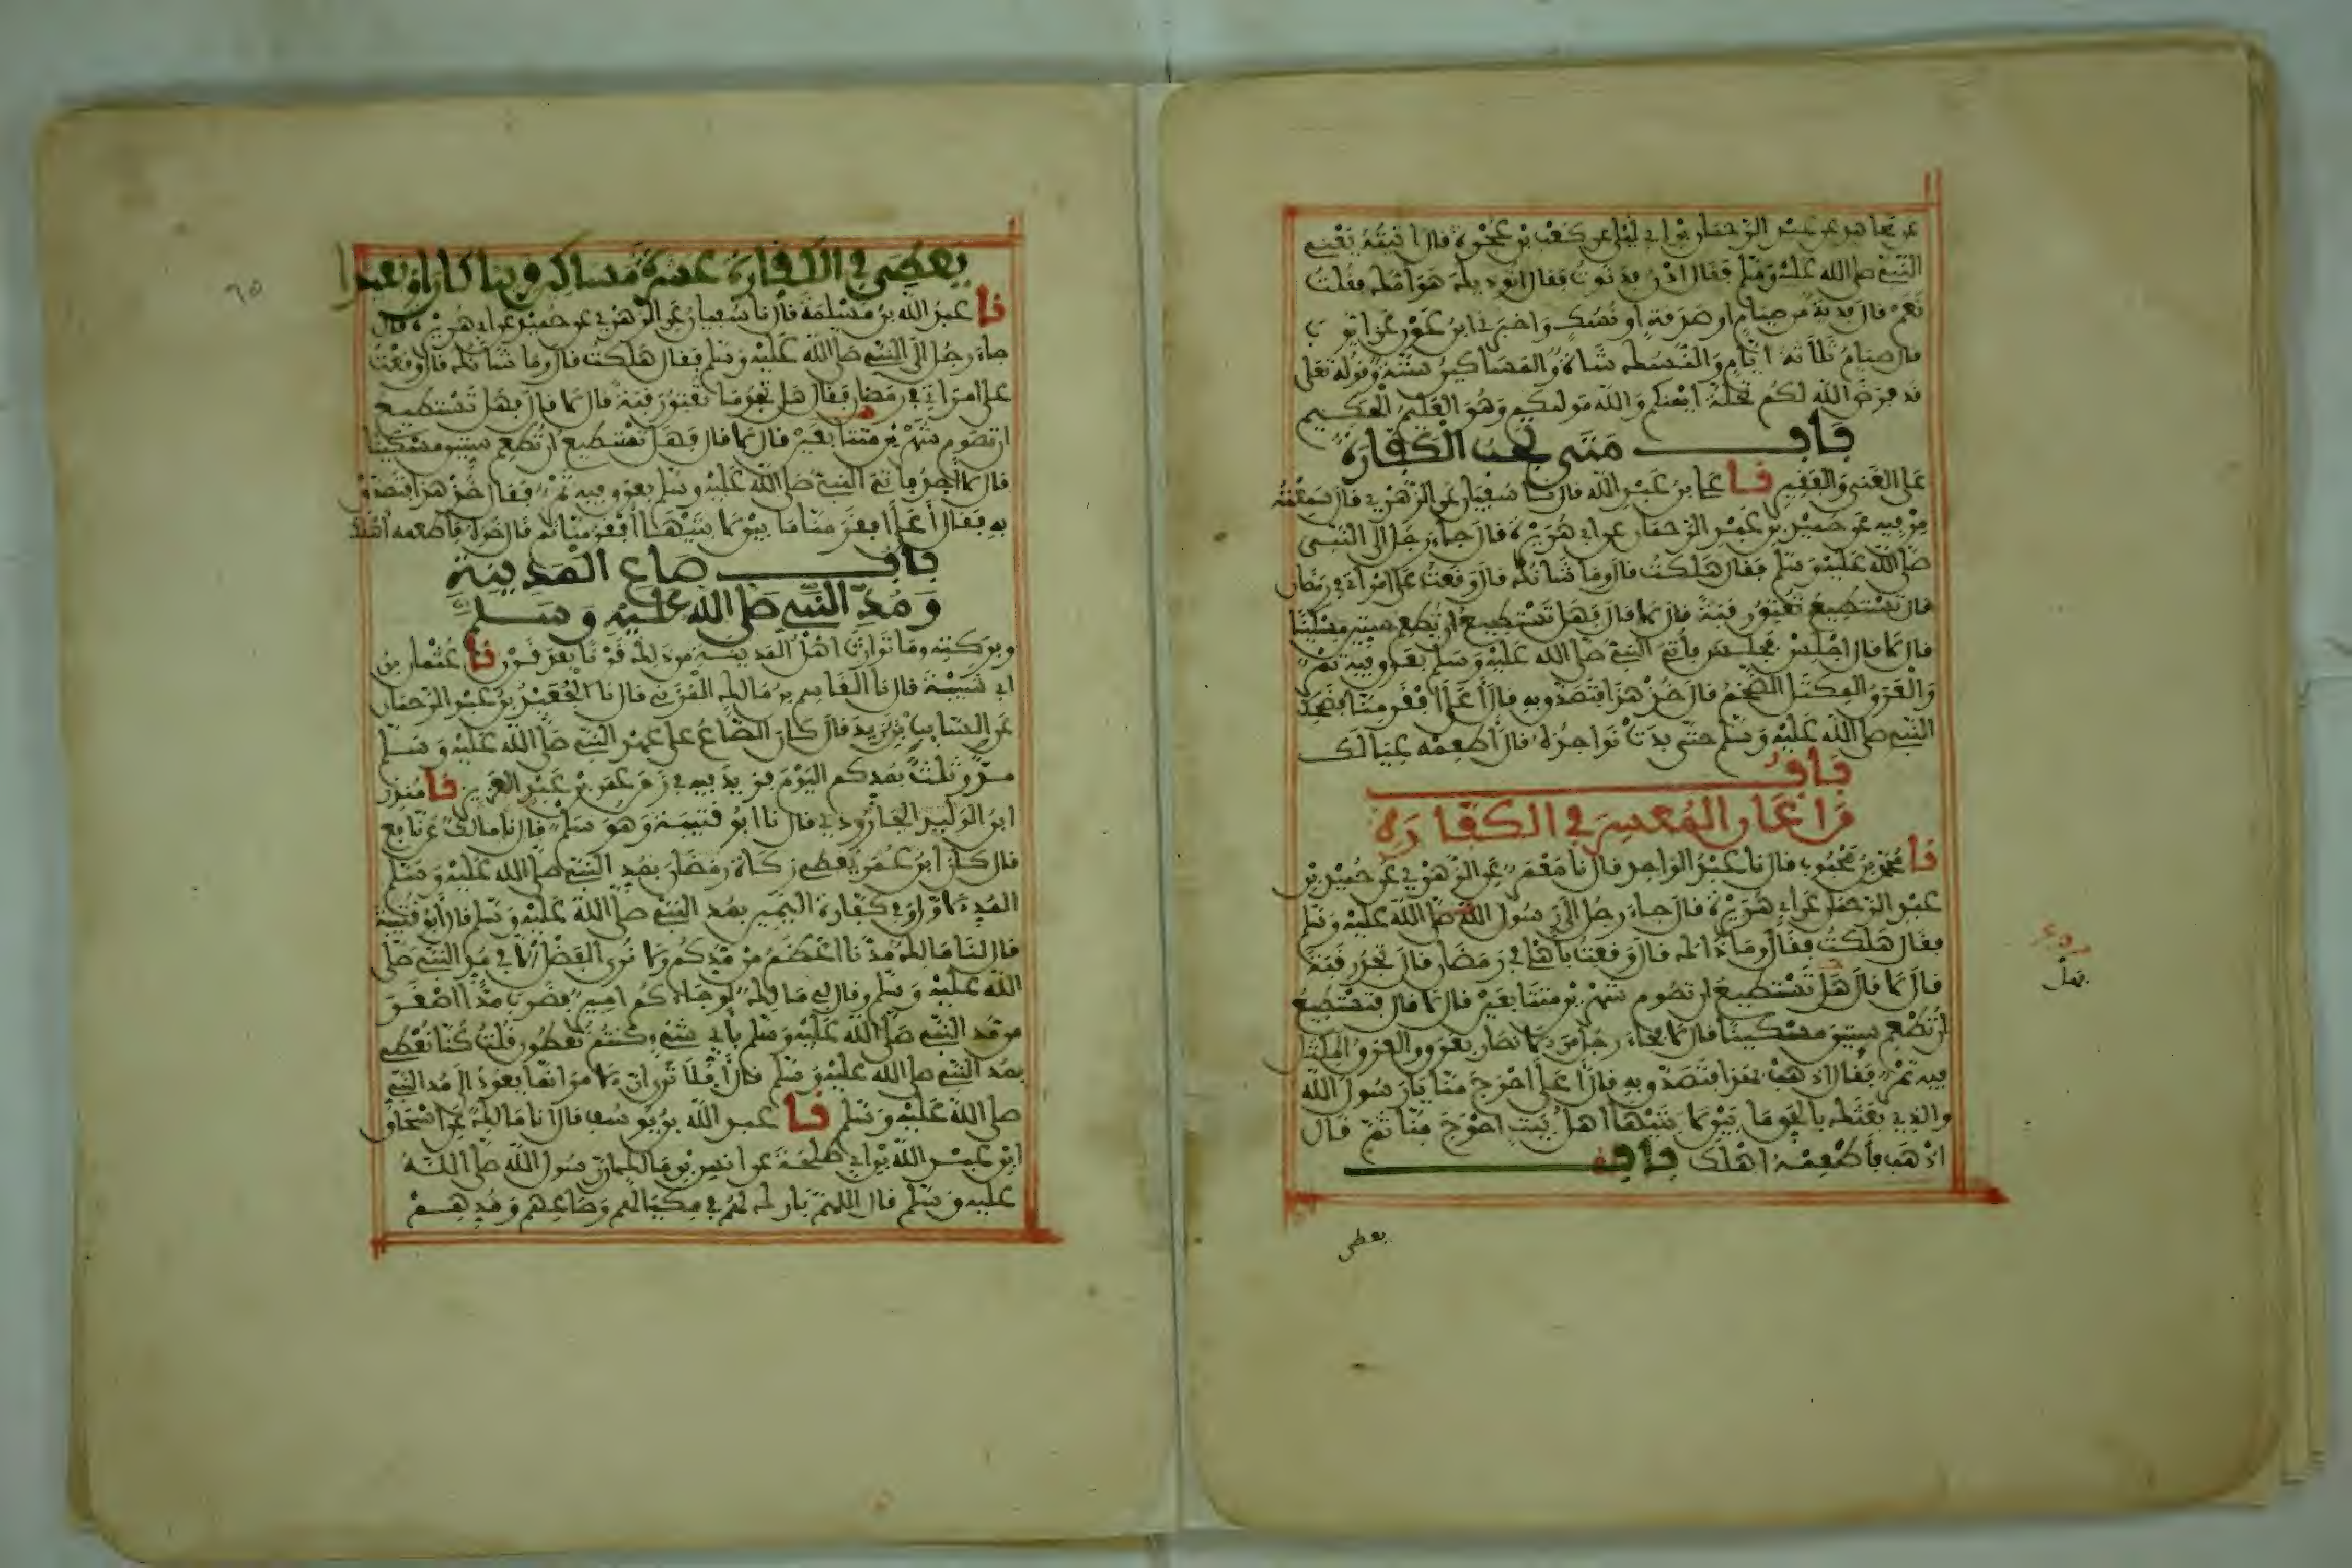 عن مجاهد عن عبد الرحمان بن ابي ليلى عن كعب بن عجرة قال اتيته يعني
النبي صلى الله عليه وسلم فقال ادن فدنوت فقال ايوذيك هوامك فقلت
نعم قال فدية من صيام او صدقة او نسك واخبرني ابن عون عن ايوب
قال صيام ثلاثة ايام والنسك شاة والمساكين ستة وقوله تعلى
قد فرض الله لكم تحلة ايمنكم والله موليكم وهو العليم الحكيم
باب متى تجب الكفارة
على الغني والفقير نا علي بن عبد الله قال نا سفيان عن الزهري قال سمعته
من فيه عن حميد بن عبد الرحمان عن ابي هريرة قال جاء رجل الى النبي
صلى الله عليه وسلم فقال هلكت قال وما شانك قال وقعت على امراتي في رمضان
قال تستطيع تعتق رقبة قال لا قال فهل تستطيع ان تطعم ستين مسكينا
قال لا قال اجلس فجلس فأتي النبي صلى الله عليه وسلم بعرق فيه تمر
والعرق المكتل الضخم قال خذ هذا فتصدق به قال أعلى افقر منا فضحك
النبي صلى الله عليه وسلم حتى بدت نواجذه قال أطعمه عيالك
باب
من اعان المعسر في الكفارة
نا محمد بن محبوب قال نا عبد الواحد قال نا معمر عن الزهري عن حميد بن
عبد الرحمن عن ابي هريرة قال جاء رجل الى رسول الله صلى الله عليه وسلم
فقال هلكت فقال وما ذاك قال وقعت بأهلي في رمضان قال تجد رقبة
قال لا قال هل تستطيع ان تصوم شهرين متتابعين قال لا قال فتستطيع
ان تطعم ستين مسكينا قال لا فجاء رجل من الانصار بعرق والعرق المكتل
فيه تمر فقال اذهب بهذا فتصدق به قال أعلى احوج منا يا رسول الله
والذي بعثك بالحق ما بين لابتيها اهل بيت احوج منا ثم قال
اذهب فأطعمه اهلك باب
يعطى
يعطي في الكفارة عشرة مساكين قريبا كان او بعيدا
نا عبد الله بن مسلمة قال نا سفيان عن الزهري عن حميد عن ابي هريرة قال
جاء رجل الى النبي صلى الله عليه وسلم فقال هلكت قال وما شانك قال وقعت
على امراتي في رمضان فقال هل تجد ما تعتق رقبة قال لا قال فهل تستطيع
ان تصوم شهرين متتابعين قال لا قال فهل تستطيع ان تطعم ستين مسكينا
قال لا أجد فاتي النبي صلى الله عليه وسلم بعرق فيه تمر فقال خذ هذا فتصدق
به فقال أعلى افقر منا ما بين لابتيها أفقر منا ثم قال خذه فأطعمه أهلك
باب صاع المدينة
ومد النبي صلى الله عليه وسلم
وبركته وما توارث اهل المدينة من ذلك قرنا بعد قرن نا عثمان بن
ابي شيبة قال نا القاسم بن مالك المزني قال نا الجعيد بن عبد الرحمان
عن السايب بن يزيد قال كان الصاع على عهد النبي صلى الله عليه وسلم
مدا وثلث بمدكم اليوم فزيد فيه في زمن عمر بن عبد العزيز نا منذر
ابن الوليد الجارودي قال نا ابو قتيبة وهو سلم قال نا مالك عن نابع
قال كان ابن عمر يعطي زكاة رمضان بمد النبي صلى الله عليه وسلم
المد الاول وفي كفارة اليمين بمد النبي صلى الله عليه وسلم قال أبو قتيبة
قال لنا مالك مدنا اعظم من مدكم ولا نرى الفضل الا في مد النبي صلى
الله عليه وسلم وقال لي مالك لو جاءكم امير فضرب مدا اصغر
من مد النبي صلى الله عليه وسلم بأي شيء كنتم تعطون قلت كنا نعطي
بمد النبي صلى الله عليه وسلم قال أفلا ترى ان الامر انما يعود الى مد النبي
صلى الله عليه وسلم نا عبد الله بن يوسف قال انا مالك عن اسحاق
ابن عبد الله بن ابي طلحة عن انس بن مالك ان رسول الله صلى الله
عليه وسلم قال اللهم بارك لهم في مكيالهم وصاعهم ومدهم